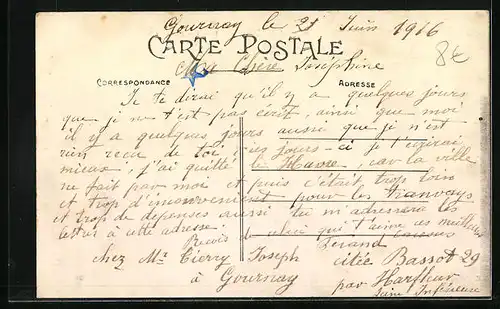 Gournay le 21 Juin 1916
CARTE POSTALE
8€
Ma Chère Joséphine
CORRESPONDANCE ADRESSE
Je te dirai qu'il y a quelques jours
que je ne t'est pas écrit, ainsi que moi
il y a quelques jours aussi que je n'est
rien recu de toi, ces jours-ci je t'écrirai
mieux, j'ai quitté le Havre, car la ville
ne fait pas moi et puis c'était trop loin
et trop d'emouvement pour les tranvays
et trop de depenses aussi tu m'adressera les
lettres à cette adresse. de celui qui t'aime ces meilleurs
chez Mr Tierry Joseph
à Gournay
citée Bassot 29
par Harfleur
Seine Inférieure